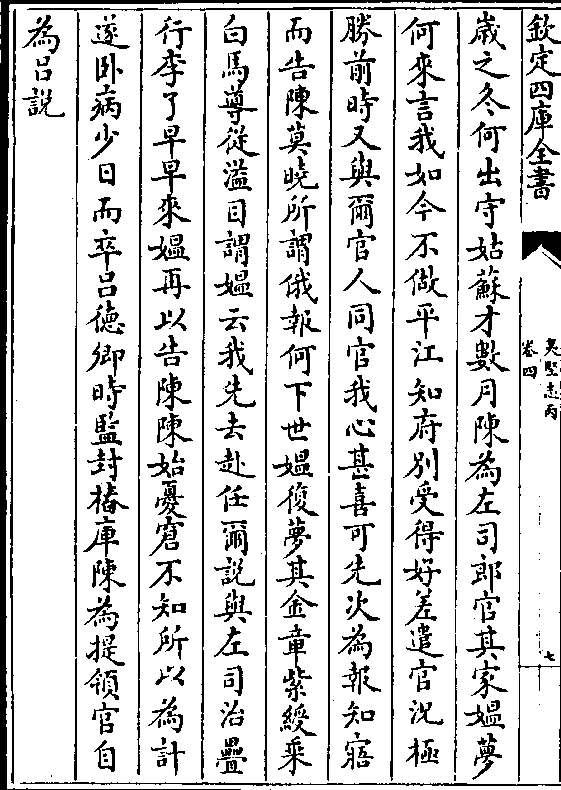 欽定四庫全書
夷堅志丙
卷四
七
歲之冬何出守姑蘇才數月陳為左司郎官其家媼夢
何來言我如今不做平江知府別受得好差遣官況極
勝前時又與爾官人同官我心甚喜可先次為報知寤
而告陳莫曉所謂俄報何下世媼復夢其金章紫綬乘
白馬導從溢目謂媼云我先去赴任爾說與左司治疊
行李了早早來媼再以告陳陳始憂窘不知所以為計
遂卧病少日而卒吕徳卿時監封樁庫陳為提領官自
為吕說